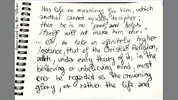 Has life no meaning for him, which
another cannot equally decipher;
then he is no "poet and lyrist",
itself will not make him one.
Or, to take an infinitely higher
instance, that of the Christian Religion,
which, under every theory of it, in the
believing or unbelieving mind, must
ever be regarded as the crowning
glory, or rather the life and